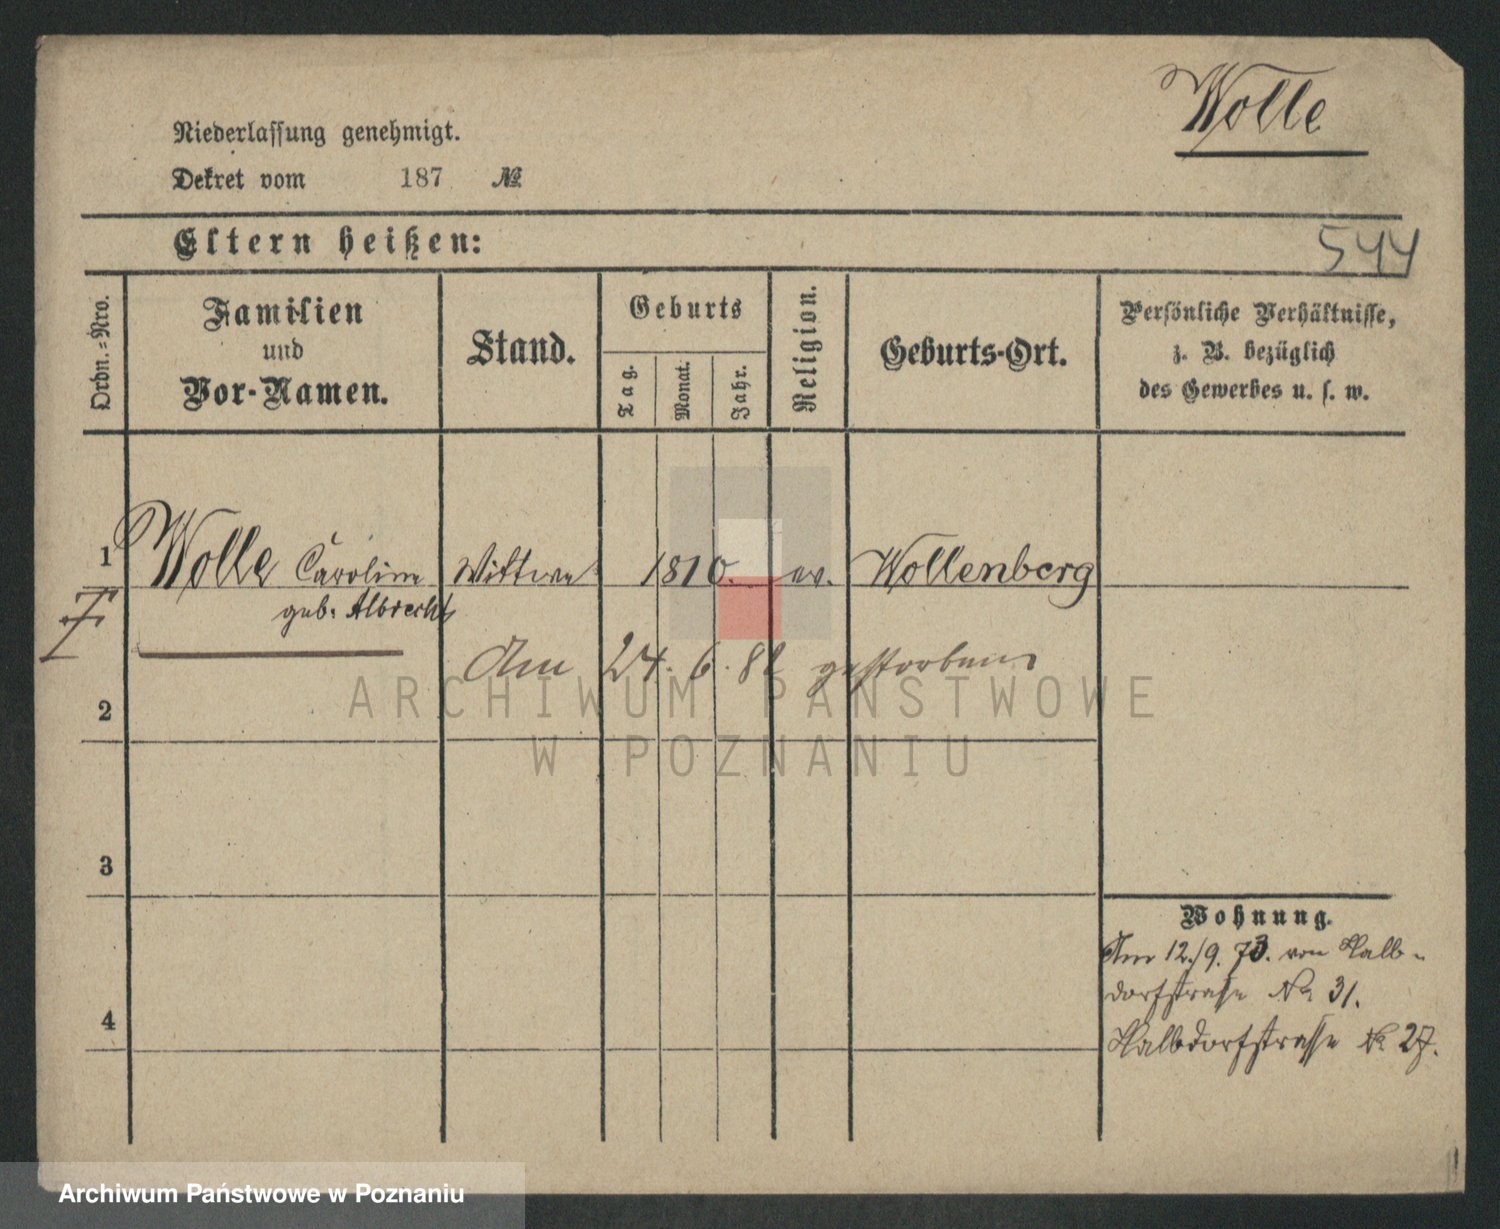 Wolle
Niederlassung genehmigt.
Dekret vom 187 №
Eltern heißen:
544
Ordn.=Nro.
Familien
und
Vor-Namen.
Stand.
Geburts
Tag.
Monat.
Jahr.
Religion.
Geburts-Ort.
Persönliche Verhältnisse,
z. B. bezüglich
des Gewerbes u. s. w.
1 Wolle Caroline Wittwe 1810. ev. Wollenberg
geb. Albrecht
Am 24. 6. 82 gestorben
ARCHIWUM PAŃSTWOWE
W POZNANIU
2
3
Wohnung.
Am 12./9. 73. von Halb-
dorfstrasse No 31.
4
Halbdorfstrasse No 27.
Archiwum Państwowe w Poznaniu